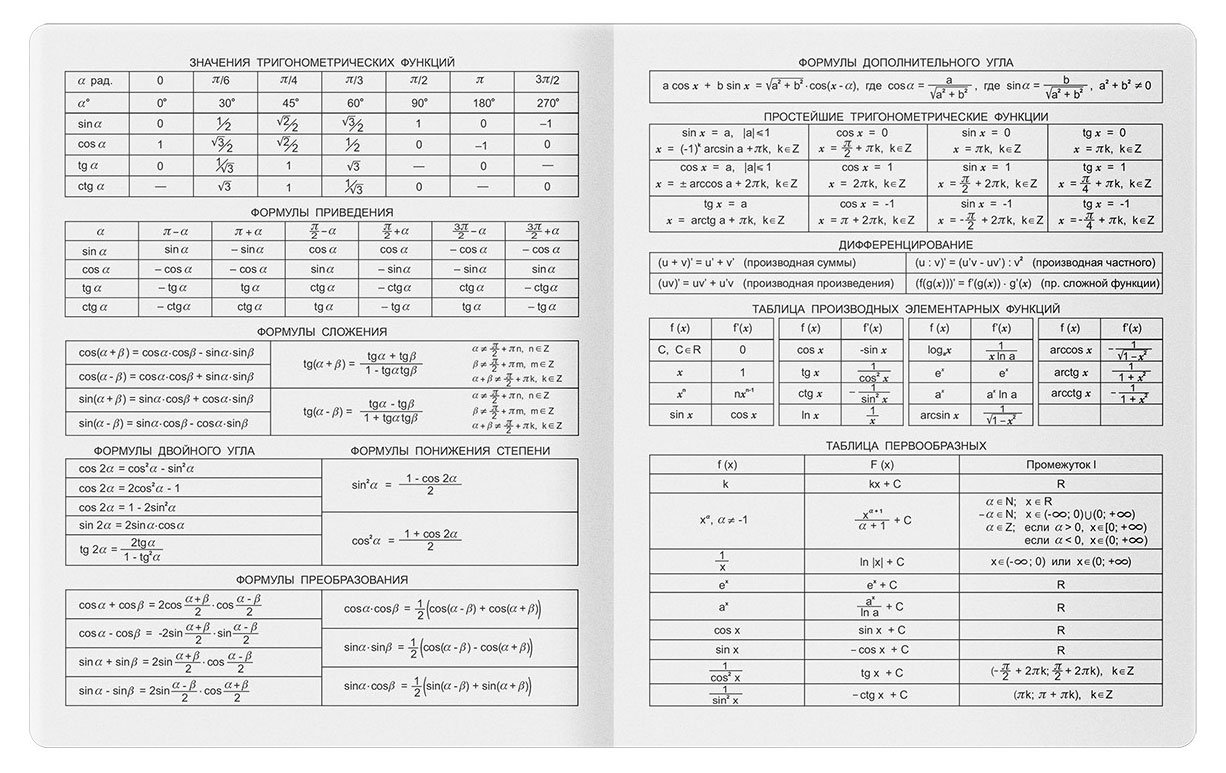 ЗНАЧЕНИЯ ТРИГОНОМЕТРИЧЕСКИХ ФУНКЦИЙ
α рад. 0 π/6 π/4 π/3 π/2 π 3π/2
α° 0° 30° 45° 60° 90° 180° 270°
sin α 0 1/2 √2/2 √3/2 1 0 –1
cos α 1 √3/2 √2/2 1/2 0 –1 0
tg α 0 1/√3 1 √3 — 0 —
ctg α — √3 1 1/√3 0 — 0
ФОРМУЛЫ ПРИВЕДЕНИЯ
α π – α π + α π/2 – α π/2 + α 3π/2 – α 3π/2 + α
sin α sin α – sin α cos α cos α – cos α – cos α
cos α – cos α – cos α sin α – sin α – sin α sin α
tg α – tg α tg α ctg α – ctg α ctg α – ctg α
ctg α – ctg α ctg α tg α – tg α tg α – tg α
ФОРМУЛЫ СЛОЖЕНИЯ
cos(α + β) = cosα·cosβ - sinα·sinβ
cos(α - β) = cosα·cosβ + sinα·sinβ
sin(α + β) = sinα·cosβ + cosα·sinβ
sin(α - β) = sinα·cosβ - cosα·sinβ
tg(α + β) = (tgα + tgβ)/(1 - tgαtgβ)
α ≠ π/2 + πn, n∈Z
β ≠ π/2 + πm, m∈Z
α + β ≠ π/2 + πk, k∈Z
tg(α - β) = (tgα - tgβ)/(1 + tgαtgβ)
α ≠ π/2 + πn, n∈Z
β ≠ π/2 + πm, m∈Z
α + β ≠ π/2 + πk, k∈Z
ФОРМУЛЫ ДВОЙНОГО УГЛА
cos 2α = cos²α - sin²α
cos 2α = 2cos²α - 1
cos 2α = 1 - 2sin²α
sin 2α = 2sinα·cosα
tg 2α = 2tgα/(1 - tg²α)
ФОРМУЛЫ ПОНИЖЕНИЯ СТЕПЕНИ
sin²α = (1 - cos 2α)/2
cos²α = (1 + cos 2α)/2
ФОРМУЛЫ ПРЕОБРАЗОВАНИЯ
cosα + cosβ = 2cos (α + β)/2 · cos (α - β)/2
cosα - cosβ = -2sin (α + β)/2 · sin (α - β)/2
sinα + sinβ = 2sin (α + β)/2 · cos (α - β)/2
sinα - sinβ = 2sin (α - β)/2 · cos (α + β)/2
cosα·cosβ = 1/2 (cos(α - β) + cos(α + β))
sinα·sinβ = 1/2 (cos(α - β) - cos(α + β))
sinα·cosβ = 1/2 (sin(α - β) + sin(α + β))
ФОРМУЛЫ ДОПОЛНИТЕЛЬНОГО УГЛА
a cos x + b sin x = √(a² + b²) · cos(x - α), где cosα = a/√(a² + b²), где sinα = b/√(a² + b²), a² + b² ≠ 0
ПРОСТЕЙШИЕ ТРИГОНОМЕТРИЧЕСКИЕ ФУНКЦИИ
sin x = a, |a|⩽1 cos x = 0 sin x = 0 tg x = 0
x = (-1)ᵏ arcsin a + πk, k∈Z x = π/2 + πk, k∈Z x = πk, k∈Z x = πk, k∈Z
cos x = a, |a|⩽1 cos x = 1 sin x = 1 tg x = 1
x = ± arccos a + 2πk, k∈Z x = 2πk, k∈Z x = π/2 + 2πk, k∈Z x = π/4 + πk, k∈Z
tg x = a cos x = -1 sin x = -1 tg x = -1
x = arctg a + πk, k∈Z x = π + 2πk, k∈Z x = -π/2 + 2πk, k∈Z x = -π/4 + πk, k∈Z
ДИФФЕРЕНЦИРОВАНИЕ
(u + v)' = u' + v' (производная суммы) (u : v)' = (u'v - uv') : v² (производная частного)
(uv)' = uv' + u'v (производная произведения) (f(g(x)))' = f'(g(x)) · g'(x) (пр. сложной функции)
ТАБЛИЦА ПРОИЗВОДНЫХ ЭЛЕМЕНТАРНЫХ ФУНКЦИЙ
f (x) f'(x) f (x) f'(x) f (x) f'(x) f (x) f'(x)
C, C∈R 0 cos x -sin x logₐx 1/(x ln a) arccos x -1/√(1 – x²)
x 1 tg x 1/cos² x eˣ eˣ arctg x 1/(1 + x²)
xⁿ nxⁿ⁻¹ ctg x -1/sin² x aˣ aˣ ln a arcctg x -1/(1 + x²)
sin x cos x ln x 1/x arcsin x 1/√(1 – x²)
ТАБЛИЦА ПЕРВООБРАЗНЫХ
f (x) F (x) Промежуток I
k kx + C R
x^α, α ≠ -1 x^(α + 1)/(α + 1) + C
α∈N; x∈R
-α∈N; x∈(-∞; 0)∪(0; +∞)
α∈Z; если α > 0, x∈[0; +∞)
если α < 0, x∈(0; +∞)
1/x ln |x| + C x∈(-∞; 0) или x∈(0; +∞)
eˣ eˣ + C R
aˣ aˣ/ln a + C R
cos x sin x + C R
sin x – cos x + C R
1/cos² x tg x + C (-π/2 + 2πk; π/2 + 2πk), k∈Z
1/sin² x – ctg x + C (πk; π + πk), k∈Z